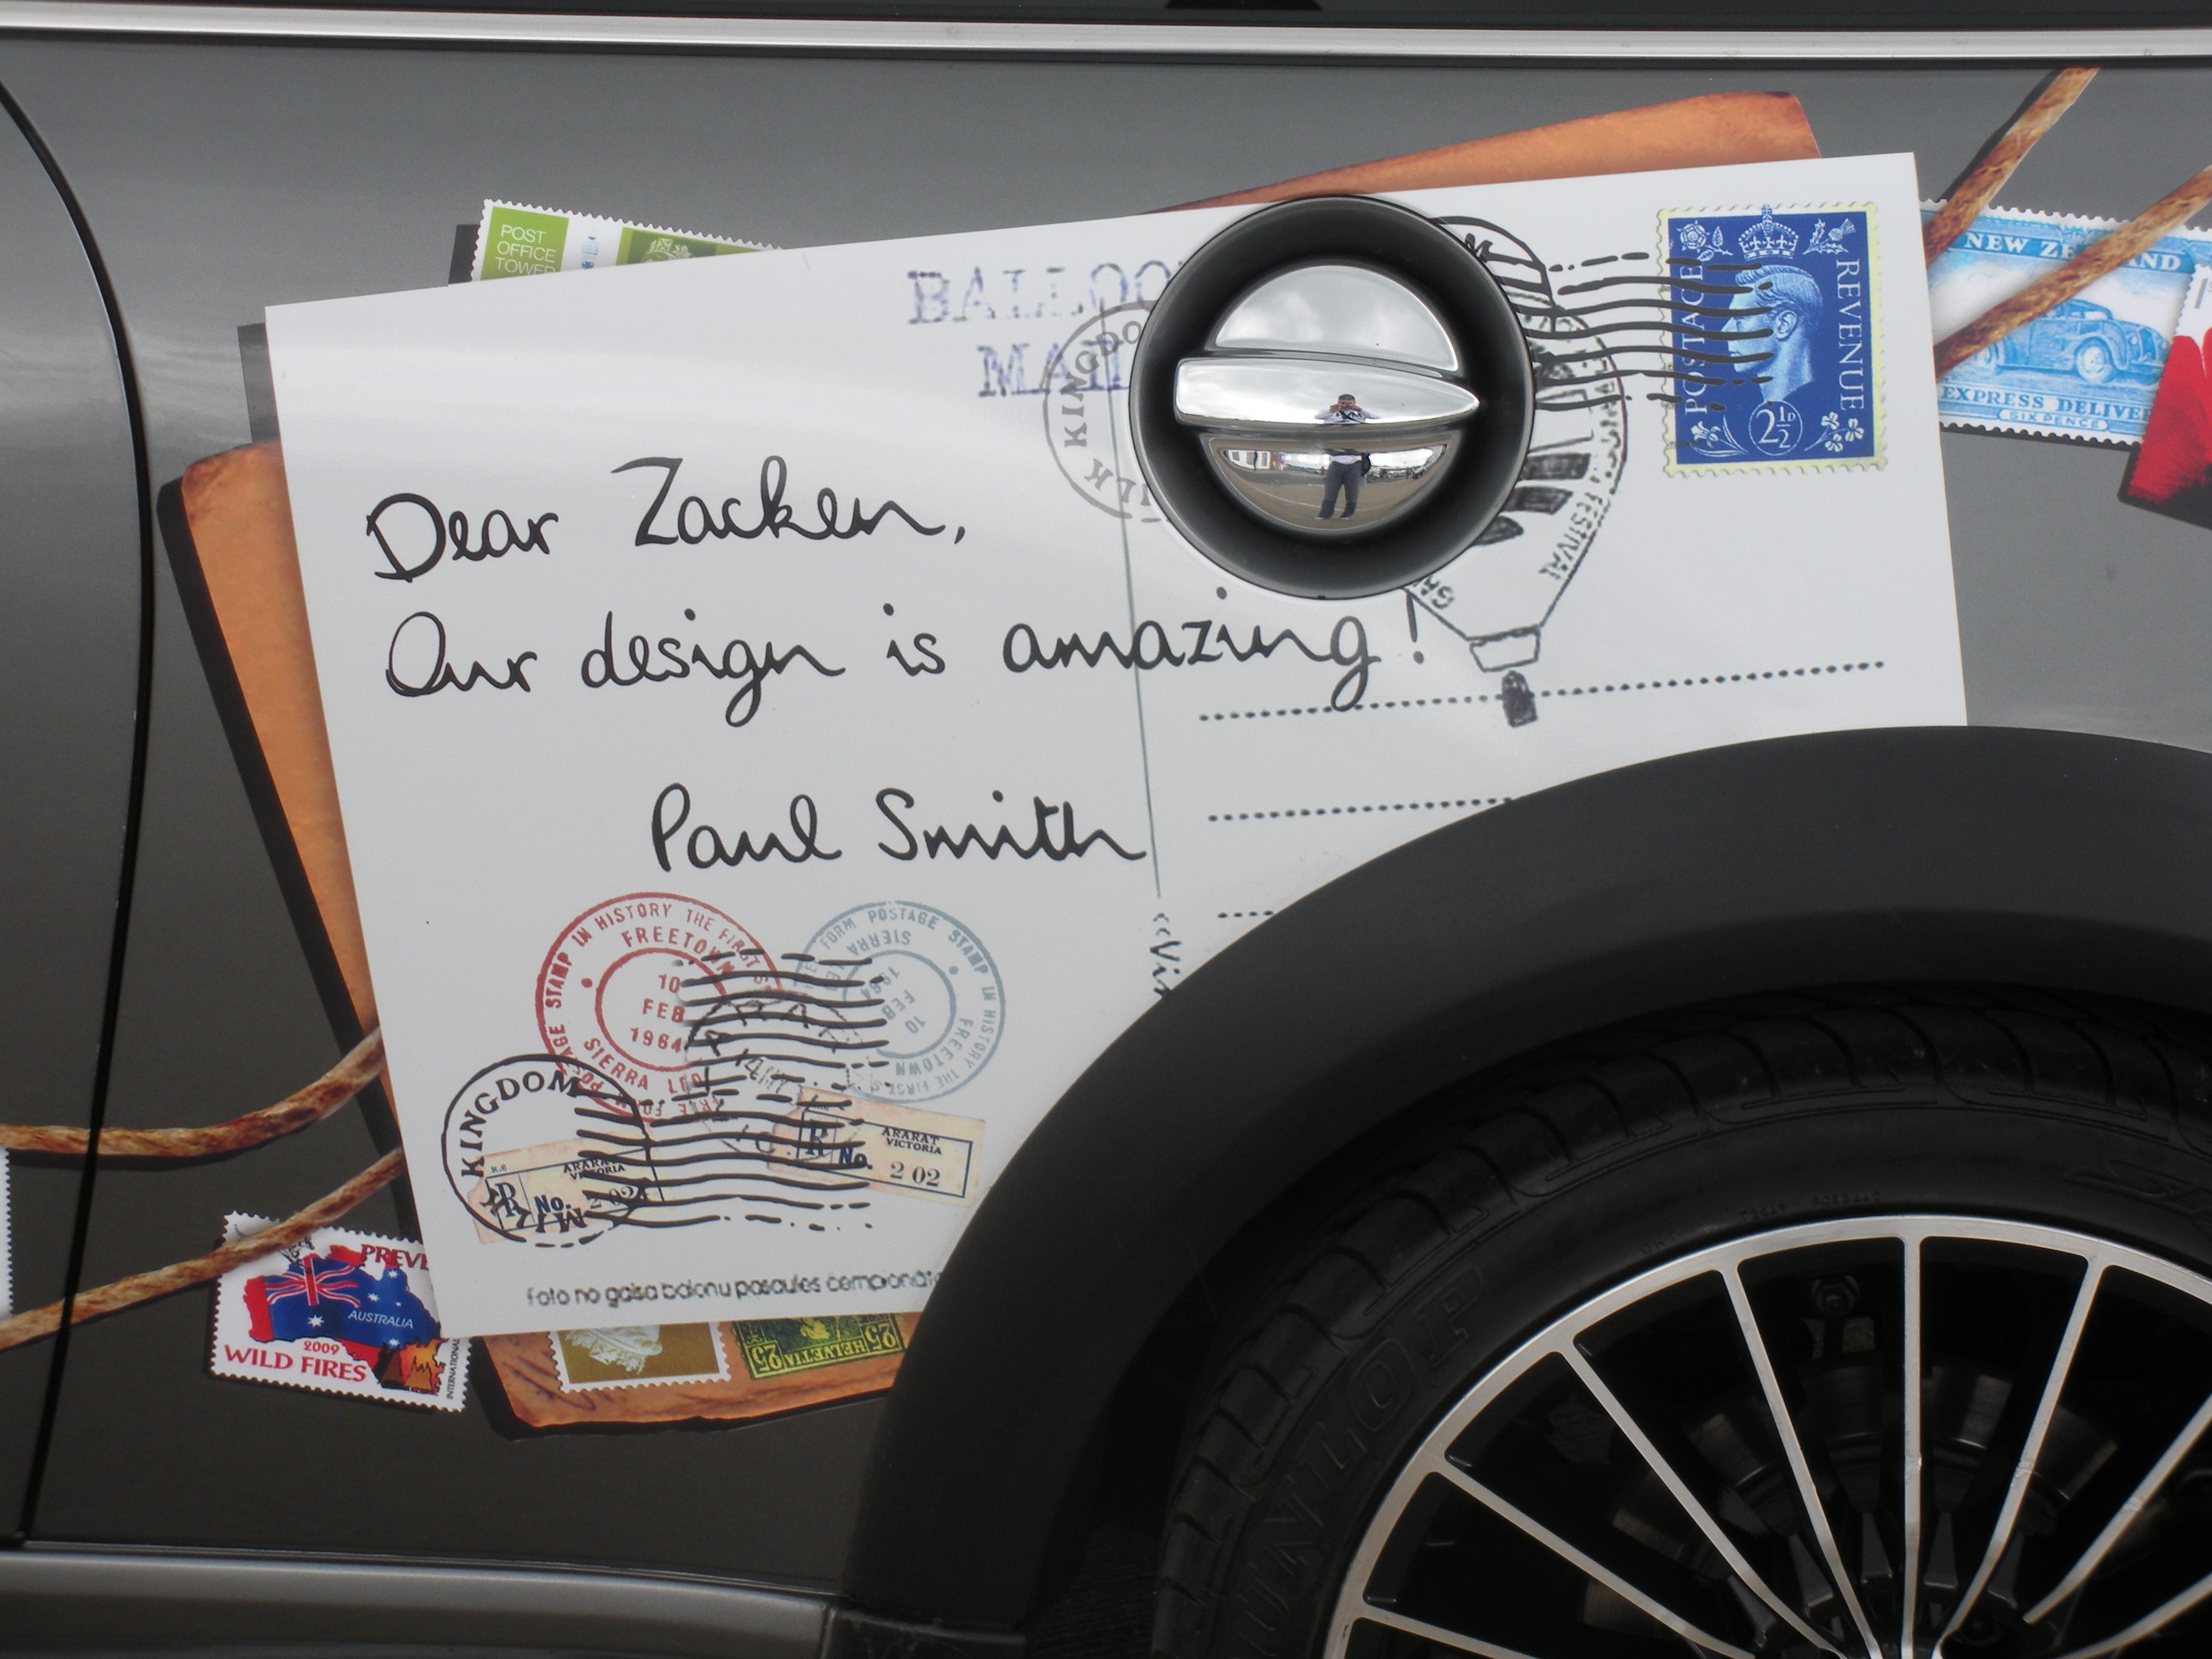 POST
OFFICE
TOWER
BALLOO
MAIL
KINGDOM
MILK
FESTIVAL
POSTAGE
REVENUE
2½D
NEW ZEALAND
EXPRESS DELIVERY
SIX PENCE
Dear Zacken,
Our design is amazing!
Paul Smith
STAMP IN HISTORY THE FIRST
FREETOWN
10
FEB
1964
SIERRA LEO
FORM POSTAGE STAMP IN HISTORY THE FIRST
SIERRA
10
FEB
1964
FREETOWN
KINGDOM
R.6
ARARAT
VICTORIA
R No. 2 02
ARARAT
VICTORIA
R No. 2 02
foto no gaisa balonu pasaules čempionāt
PREVE
AUSTRALIA
2009
WILD FIRES
INTERNATIONAL
25 HELVETIA 25
DUNLOP